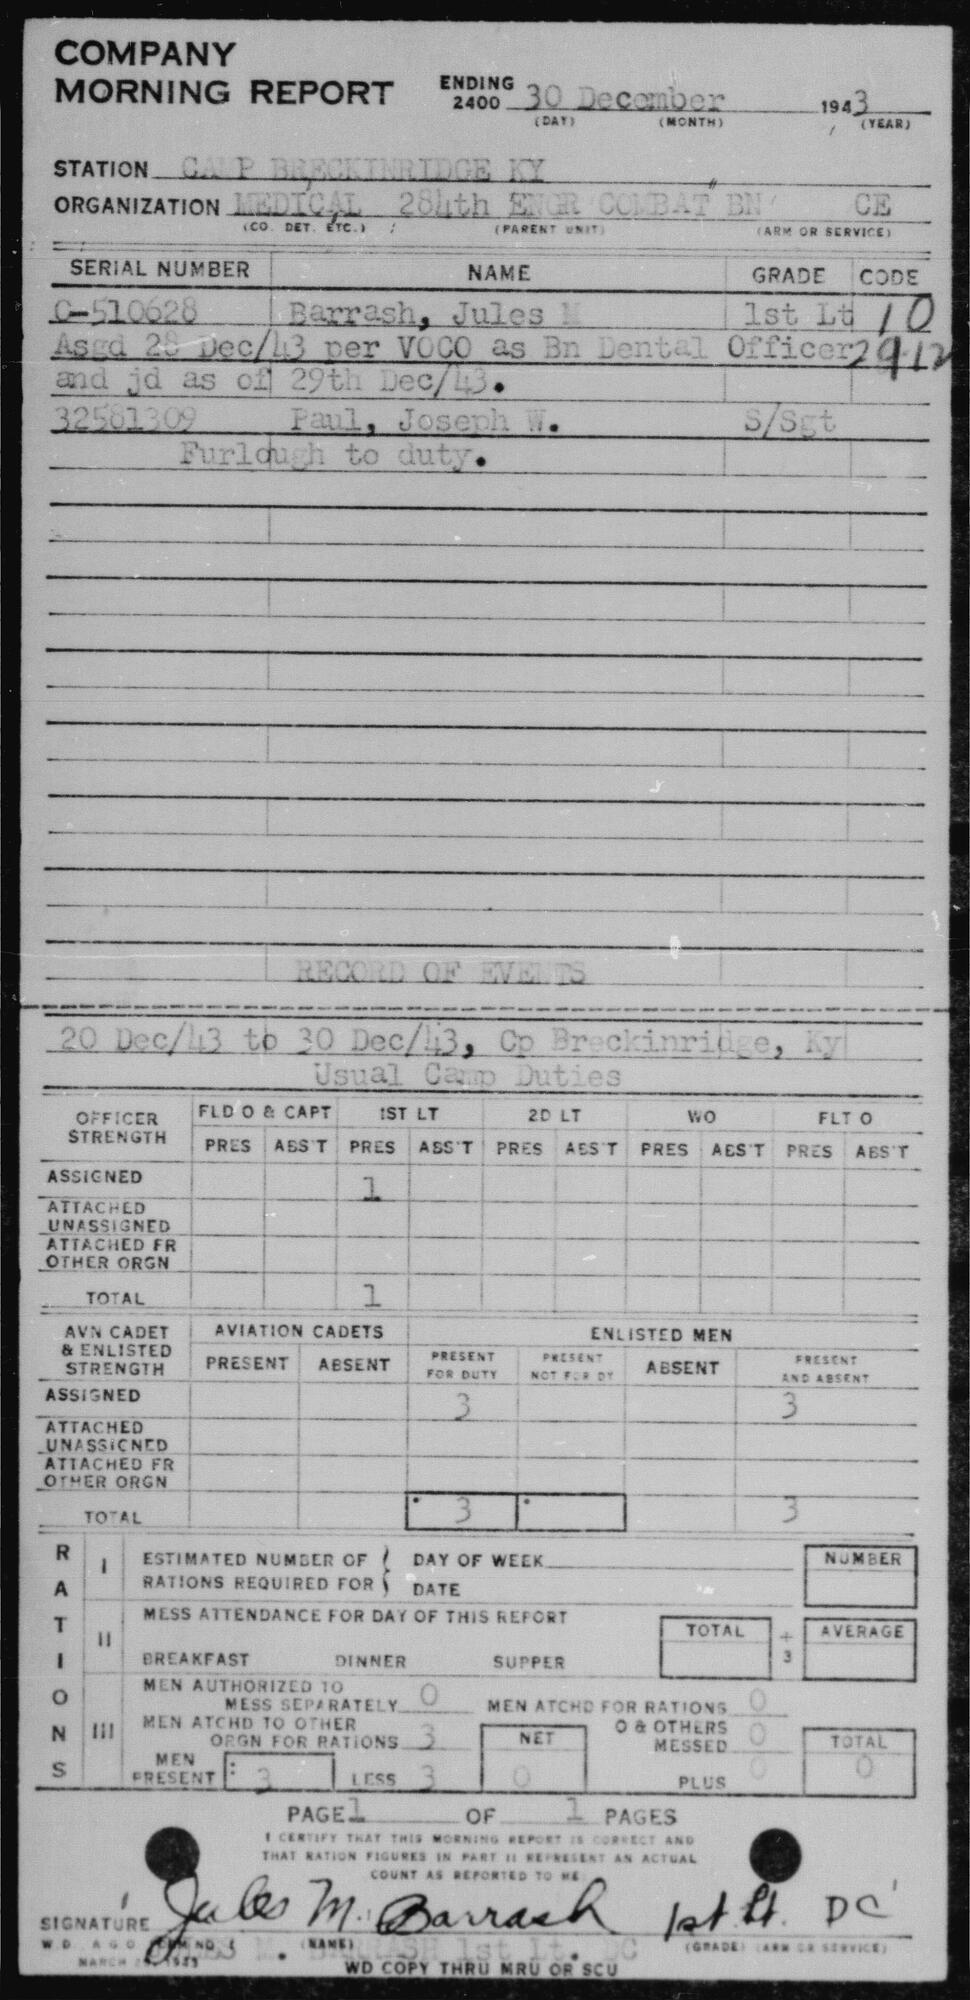 COMPANY
MORNING REPORT ENDING 2400 30 December 1943
(DAY) (MONTH) (YEAR)
STATION CAMP BRECKINRIDGE KY
ORGANIZATION MEDICAL 284th ENGR COMBAT BN CE
(CO. DET. ETC.) (PARENT UNIT) (ARM OR SERVICE)
SERIAL NUMBER NAME GRADE CODE
O-510628 Barrash, Jules M 1st Lt 10
Asgd 28 Dec/43 per VOCO as Bn Dental Officer 29-12
and jd as of 29th Dec/43.
32581309 Paul, Joseph W. S/Sgt
Furlough to duty.
RECORD OF EVENTS
20 Dec/43 to 30 Dec/43, Cp Breckinridge, Ky
Usual Camp Duties
OFFICER STRENGTH FLD O & CAPT 1ST LT 2D LT WO FLT O
PRES ABS'T PRES ABS'T PRES ABS'T PRES ABS'T PRES ABS'T
ASSIGNED 1
ATTACHED UNASSIGNED
ATTACHED FR OTHER ORGN
TOTAL 1
AVN CADET & ENLISTED STRENGTH AVIATION CADETS ENLISTED MEN
PRESENT ABSENT PRESENT FOR DUTY PRESENT NOT FOR DY ABSENT PRESENT AND ABSENT
ASSIGNED 3 3
ATTACHED UNASSIGNED
ATTACHED FR OTHER ORGN
TOTAL 3 3
RATIONS
I ESTIMATED NUMBER OF RATIONS REQUIRED FOR DAY OF WEEK DATE NUMBER
II MESS ATTENDANCE FOR DAY OF THIS REPORT TOTAL ÷ 3 AVERAGE
BREAKFAST DINNER SUPPER
III MEN AUTHORIZED TO MESS SEPARATELY 0 MEN ATCHD FOR RATIONS 0
MEN ATCHD TO OTHER ORGN FOR RATIONS 3 NET O & OTHERS MESSED 0 TOTAL
MEN PRESENT 3 LESS 3 0 PLUS 0 0
PAGE 1 OF 1 PAGES
I CERTIFY THAT THIS MORNING REPORT IS CORRECT AND
THAT RATION FIGURES IN PART II REPRESENT AN ACTUAL
COUNT AS REPORTED TO ME
SIGNATURE Jules M. Barrash 1st Lt. DC
JULES M. BARRASH 1st Lt. DC
W.D. A.G.O. FORM NO. 1 (NAME) (GRADE) (ARM OR SERVICE)
MARCH 1943
WD COPY THRU MRU OR SCU